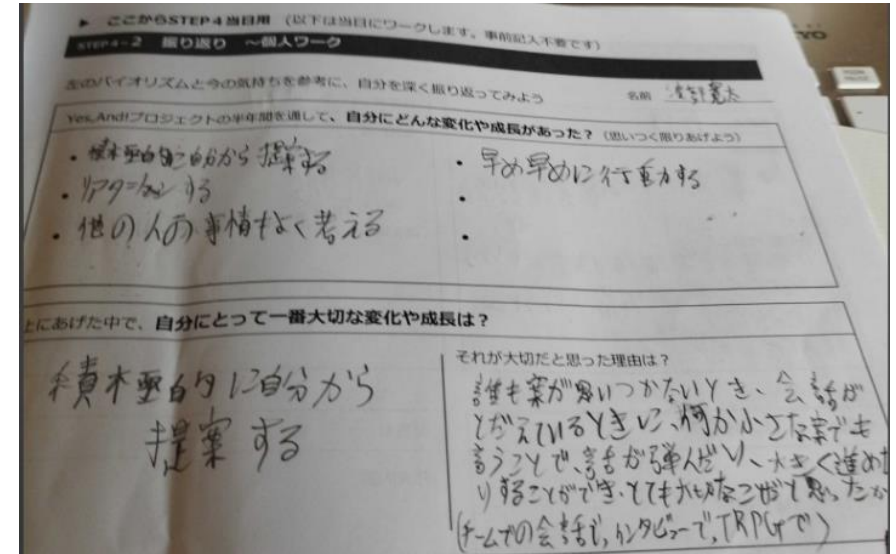 ▶ ここからSTEP4当日用 (以下は当日にワークします。事前記入不要です)
STEP4-2 振り返り ～個人ワーク
左のバイオリズムと今の気持ちを参考に、自分を深く振り返ってみよう
名前
Yes,And!プロジェクトの半年間を通して、自分にどんな変化や成長があった？（思いつく限りあげよう）
・積極的に自分から提案する
・リアクションする
・他の人の事情もよく考える
・早め早めに行動する
・
・
上にあげた中で、自分にとって一番大切な変化や成長は？
積極的に自分から
提案する
それが大切だと思った理由は？
誰も案が思いつかないとき、会話が
とだえているときに、何か小さな案でも
言うことで、話が弾んだり、大きく進めた
りすることができ、とても大切なことだと思ったか
(チームでの会話で, インタビューで, TRPGで)